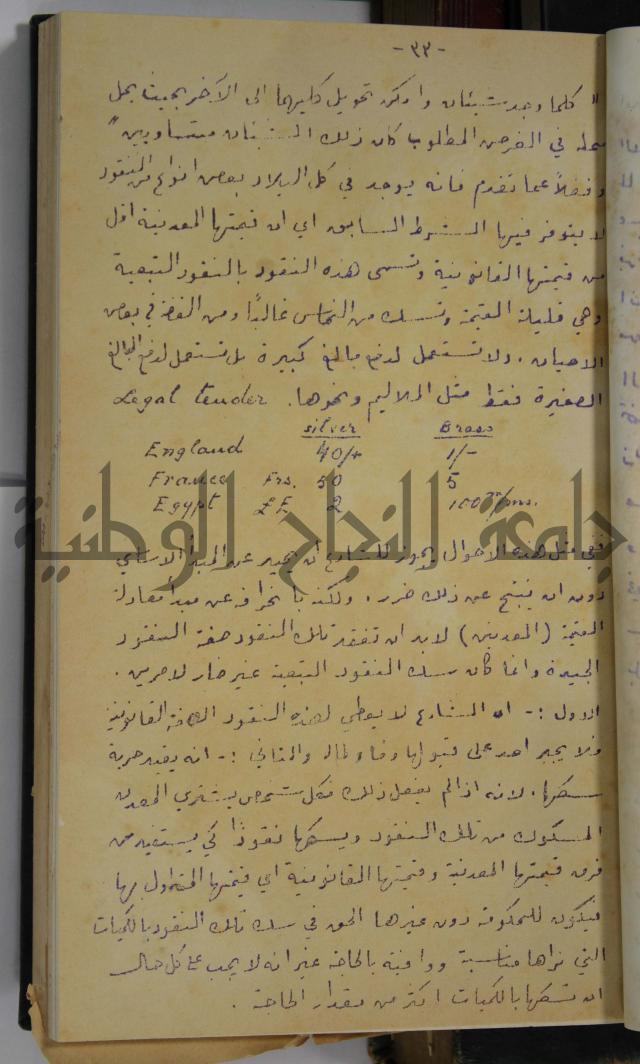 -٣٣-
" كلما وجد شيئان وامكن تحويل كليهما الى الآخر بحيث يحل
محله في الغرض المطلوب كان ذلك الشيئان متساويين "
وفضلاً عما تقدم فانه يوجد في كل البلاد بعض انواع من النقود
لا يتوفر فيها الشرط السابق اي ان قيمتها المعدنية اقل
من قيمتها القانونية وتسمى هذه النقود بالنقود التبعية
وهي قليلة القيمة وتسك من النحاس غالباً ومن الفضة في بعض
الاحيان . ولا تستعمل لدفع مبالغ كبيرة بل تستعمل لدفع المبالغ
الصغيرة فقط مثل الملاليم ونحوها . Legal tender
silver Brass
England 40/- 1/-
France Frs. 50 5
Egypt £E 2 10
جامعة النجاح الوطنية
ففي مثل هذه الاحوال يجوز للشارع ان يحيد عن المبدأ الاساسي
دون ان ينتج عن ذلك ضرر . ولكنه بانحرافه عن مبدأ معادلة
القيمة ( المعدنين ) لابد ان تفقد تلك النقود صفة النقود
الجيدة وانما كان سك النقود التبعية غير ضار لامرين .
الاول :- ان الشارع لا يعطي لهذه النقود الصفة القانونية
فلا يجبر احد على قبولها وفاء والثاني :- انه يقيد حرية
سكها . لانه اذا لم يفعل ذلك فكل شخص يشتري المعدن
المسكوك من تلك النقود ويسكها نقوداً كي يستفيد من
فرق قيمتها المعدنية وقيمتها القانونية اي قيمتها المتداول بها
فيكون للحكومة دون غيرها الحق في سك تلك النقود بالكميات
التي تراها مناسبة ووافية بالحاجة غير انه لا يجب على كل حال
ان تسكها بالكميات اكثر من مقدار الحاجة .